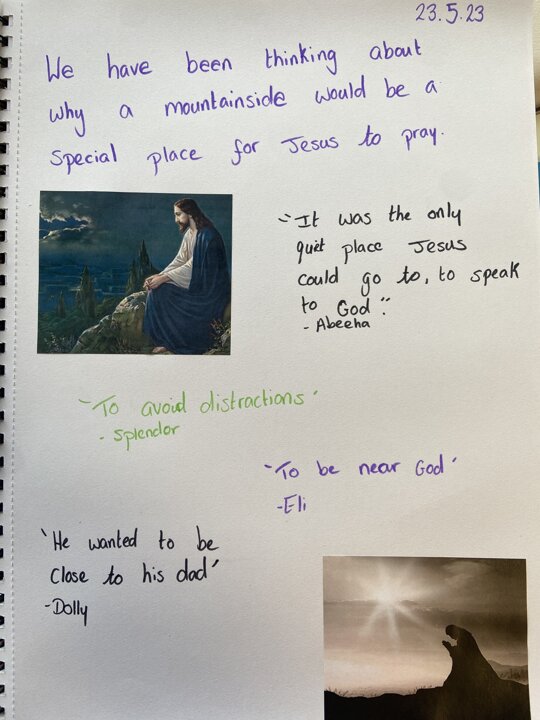 23.5.23
We have been thinking about
why a mountainside would be a
special place for Jesus to pray.
"It was the only
quiet place Jesus
could go to, to speak
to God."
- Abeeha
'To avoid distractions'
- Splendor
'To be near God'
-Eli
'He wanted to be
close to his dad'
-Dolly